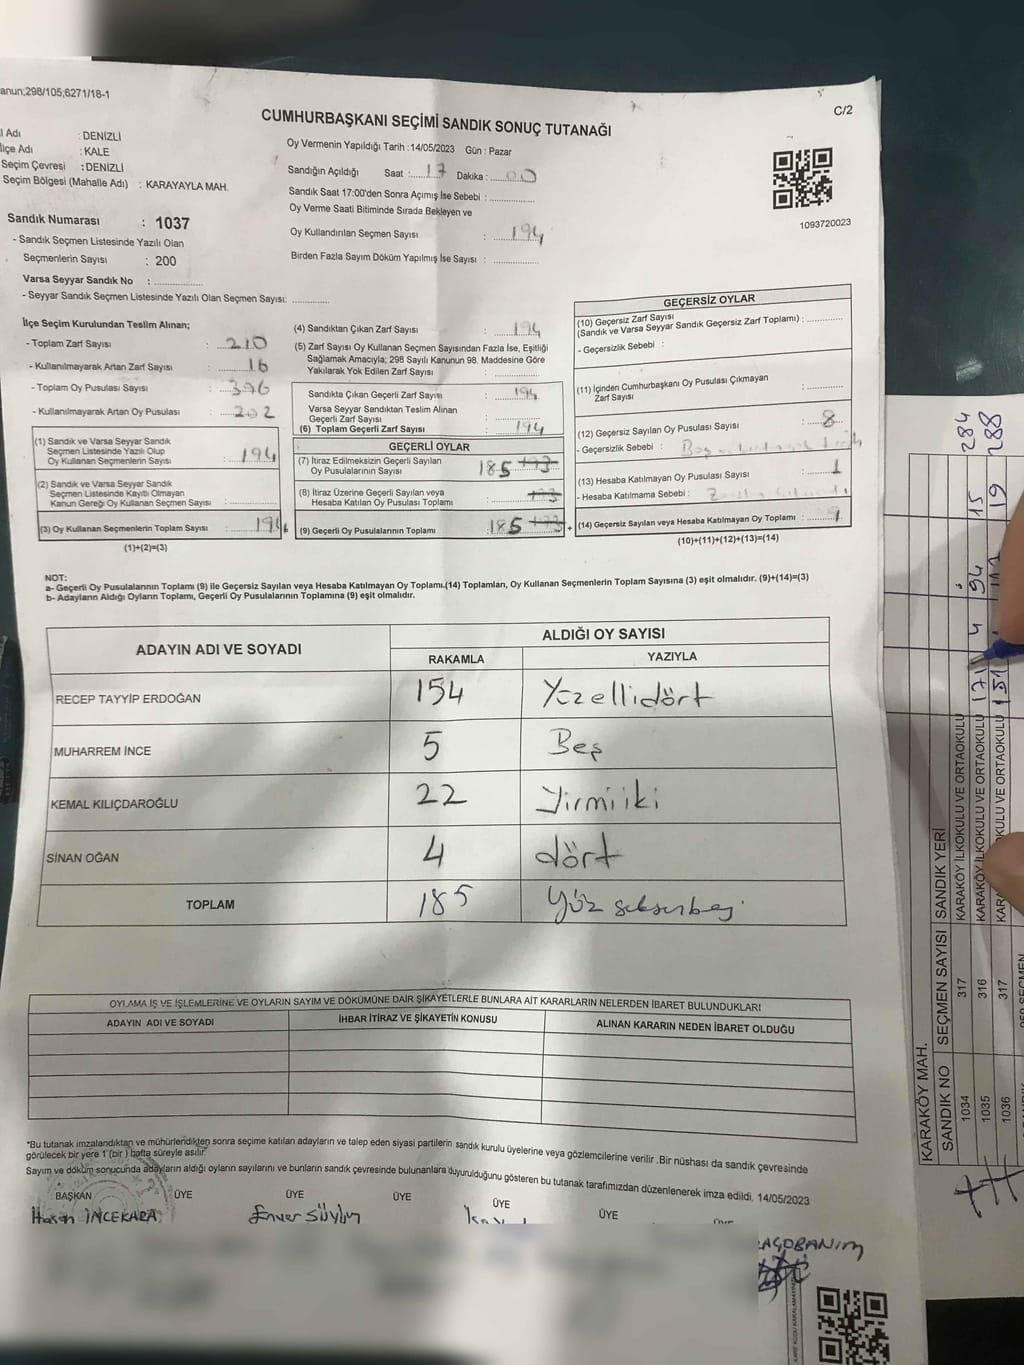 anun;298/105;6271/18-1
C/2
CUMHURBAŞKANI SEÇİMİ SANDIK SONUÇ TUTANAĞI
l Adı : DENİZLİ
lçe Adı : KALE
Seçim Çevresi : DENİZLİ
Seçim Bölgesi (Mahalle Adı) : KARAYAYLA MAH.
Sandık Numarası : 1037
- Sandık Seçmen Listesinde Yazılı Olan
Seçmenlerin Sayısı : 200
Varsa Seyyar Sandık No :
- Seyyar Sandık Seçmen Listesinde Yazılı Olan Seçmen Sayısı:
Oy Vermenin Yapıldığı Tarih :14/05/2023 Gün : Pazar
Sandığın Açıldığı Saat : 17 Dakika : 00
Sandık Saat 17:00'den Sonra Açımış İse Sebebi :
Oy Verme Saati Bitiminde Sırada Bekleyen ve
Oy Kullandırılan Seçmen Sayısı : 194
Birden Fazla Sayım Döküm Yapılmış İse Sayısı :
1093720023
İlçe Seçim Kurulundan Teslim Alınan;
- Toplam Zarf Sayısı : 210
- Kullanılmayarak Artan Zarf Sayısı : 16
- Toplam Oy Pusulası Sayısı : 396
- Kullanılmayarak Artan Oy Pusulası : 202
(1) Sandık ve Varsa Seyyar Sandık
Seçmen Listesinde Yazılı Olup
Oy Kullanan Seçmenlerin Sayısı : 194
(2) Sandık ve Varsa Seyyar Sandık
Seçmen Listesinde Kayıtlı Olmayan
Kanun Gereği Oy Kullanan Seçmen Sayısı :
(3) Oy Kullanan Seçmenlerin Toplam Sayısı : 194
(1)+(2)=(3)
(4) Sandıktan Çıkan Zarf Sayısı : 194
(5) Zarf Sayısı Oy Kullanan Seçmen Sayısından Fazla İse, Eşitliği
Sağlamak Amacıyla; 298 Sayılı Kanunun 98. Maddesine Göre
Yakılarak Yok Edilen Zarf Sayısı :
Sandıkta Çıkan Geçerli Zarf Sayısı : 194
Varsa Seyyar Sandıktan Teslim Alınan
Geçerli Zarf Sayısı :
(6) Toplam Geçerli Zarf Sayısı : 194
GEÇERLİ OYLAR
(7) İtiraz Edilmeksizin Geçerli Sayılan
Oy Pusulalarının Sayısı : 185
(8) İtiraz Üzerine Geçerli Sayılan veya
Hesaba Katılan Oy Pusulası Toplamı :
(9) Geçerli Oy Pusulalarının Toplamı : 185
+
GEÇERSİZ OYLAR
(10) Geçersiz Zarf Sayısı
(Sandık ve Varsa Seyyar Sandık Geçersiz Zarf Toplamı) :
- Geçersizlik Sebebi :
(11) İçinden Cumhurbaşkanı Oy Pusulası Çıkmayan
Zarf Sayısı :
(12) Geçersiz Sayılan Oy Pusulası Sayısı : 8
- Geçersizlik Sebebi :
(13) Hesaba Katılmayan Oy Pusulası Sayısı : 1
- Hesaba Katılmama Sebebi :
(14) Geçersiz Sayılan veya Hesaba Katılmayan Oy Toplamı : 9
(10)+(11)+(12)+(13)=(14)
NOT:
a- Geçerli Oy Pusulalarının Toplamı (9) ile Geçersiz Sayılan veya Hesaba Katılmayan Oy Toplamı.(14) Toplamları, Oy Kullanan Seçmenlerin Toplam Sayısına (3) eşit olmalıdır. (9)+(14)=(3)
b- Adayların Aldığı Oyların Toplamı, Geçerli Oy Pusulalarının Toplamına (9) eşit olmalıdır.
ADAYIN ADI VE SOYADI ALDIĞI OY SAYISI
RAKAMLA YAZIYLA
RECEP TAYYİP ERDOĞAN 154 Yüzellidört
MUHARREM İNCE 5 Beş
KEMAL KILIÇDAROĞLU 22 Yirmiiki
SİNAN OĞAN 4 dört
TOPLAM 185 Yüz seksenbeş
OYLAMA İŞ VE İŞLEMLERİNE VE OYLARIN SAYIM VE DÖKÜMÜNE DAİR ŞİKAYETLERLE BUNLARA AİT KARARLARIN NELERDEN İBARET BULUNDUKLARI
ADAYIN ADI VE SOYADI İHBAR İTİRAZ VE ŞİKAYETİN KONUSU ALINAN KARARIN NEDEN İBARET OLDUĞU
*Bu tutanak imzalandıktan ve mühürlendikten sonra seçime katılan adayların ve talep eden siyasi partilerin sandık kurulu üyelerine veya gözlemcilerine verilir .Bir nüshası da sandık çevresinde
görülecek bir yere 1 (bir ) hafta süreyle asılır.
Sayım ve döküm sonucunda adayların aldığı oyların sayılarını ve bunların sandık çevresinde bulunanlara duyurulduğunu gösteren bu tutanak tarafımızdan düzenlenerek imza edildi. 14/05/2023
BAŞKAN ÜYE ÜYE ÜYE ÜYE ÜYE
Hasan İNCEKARA Enver
KARAKÖY MAH.
SANDIK NO SEÇMEN SAYISI SANDIK YERİ
1034 317 KARAKÖY İLKOKULU VE ORTAOKULU
1035 316 KARAKÖY İLKOKULU VE ORTAOKULU 171 4 94 15 284
1036 317 KAR KULU VE ORTAOKULU 151 111 19 288